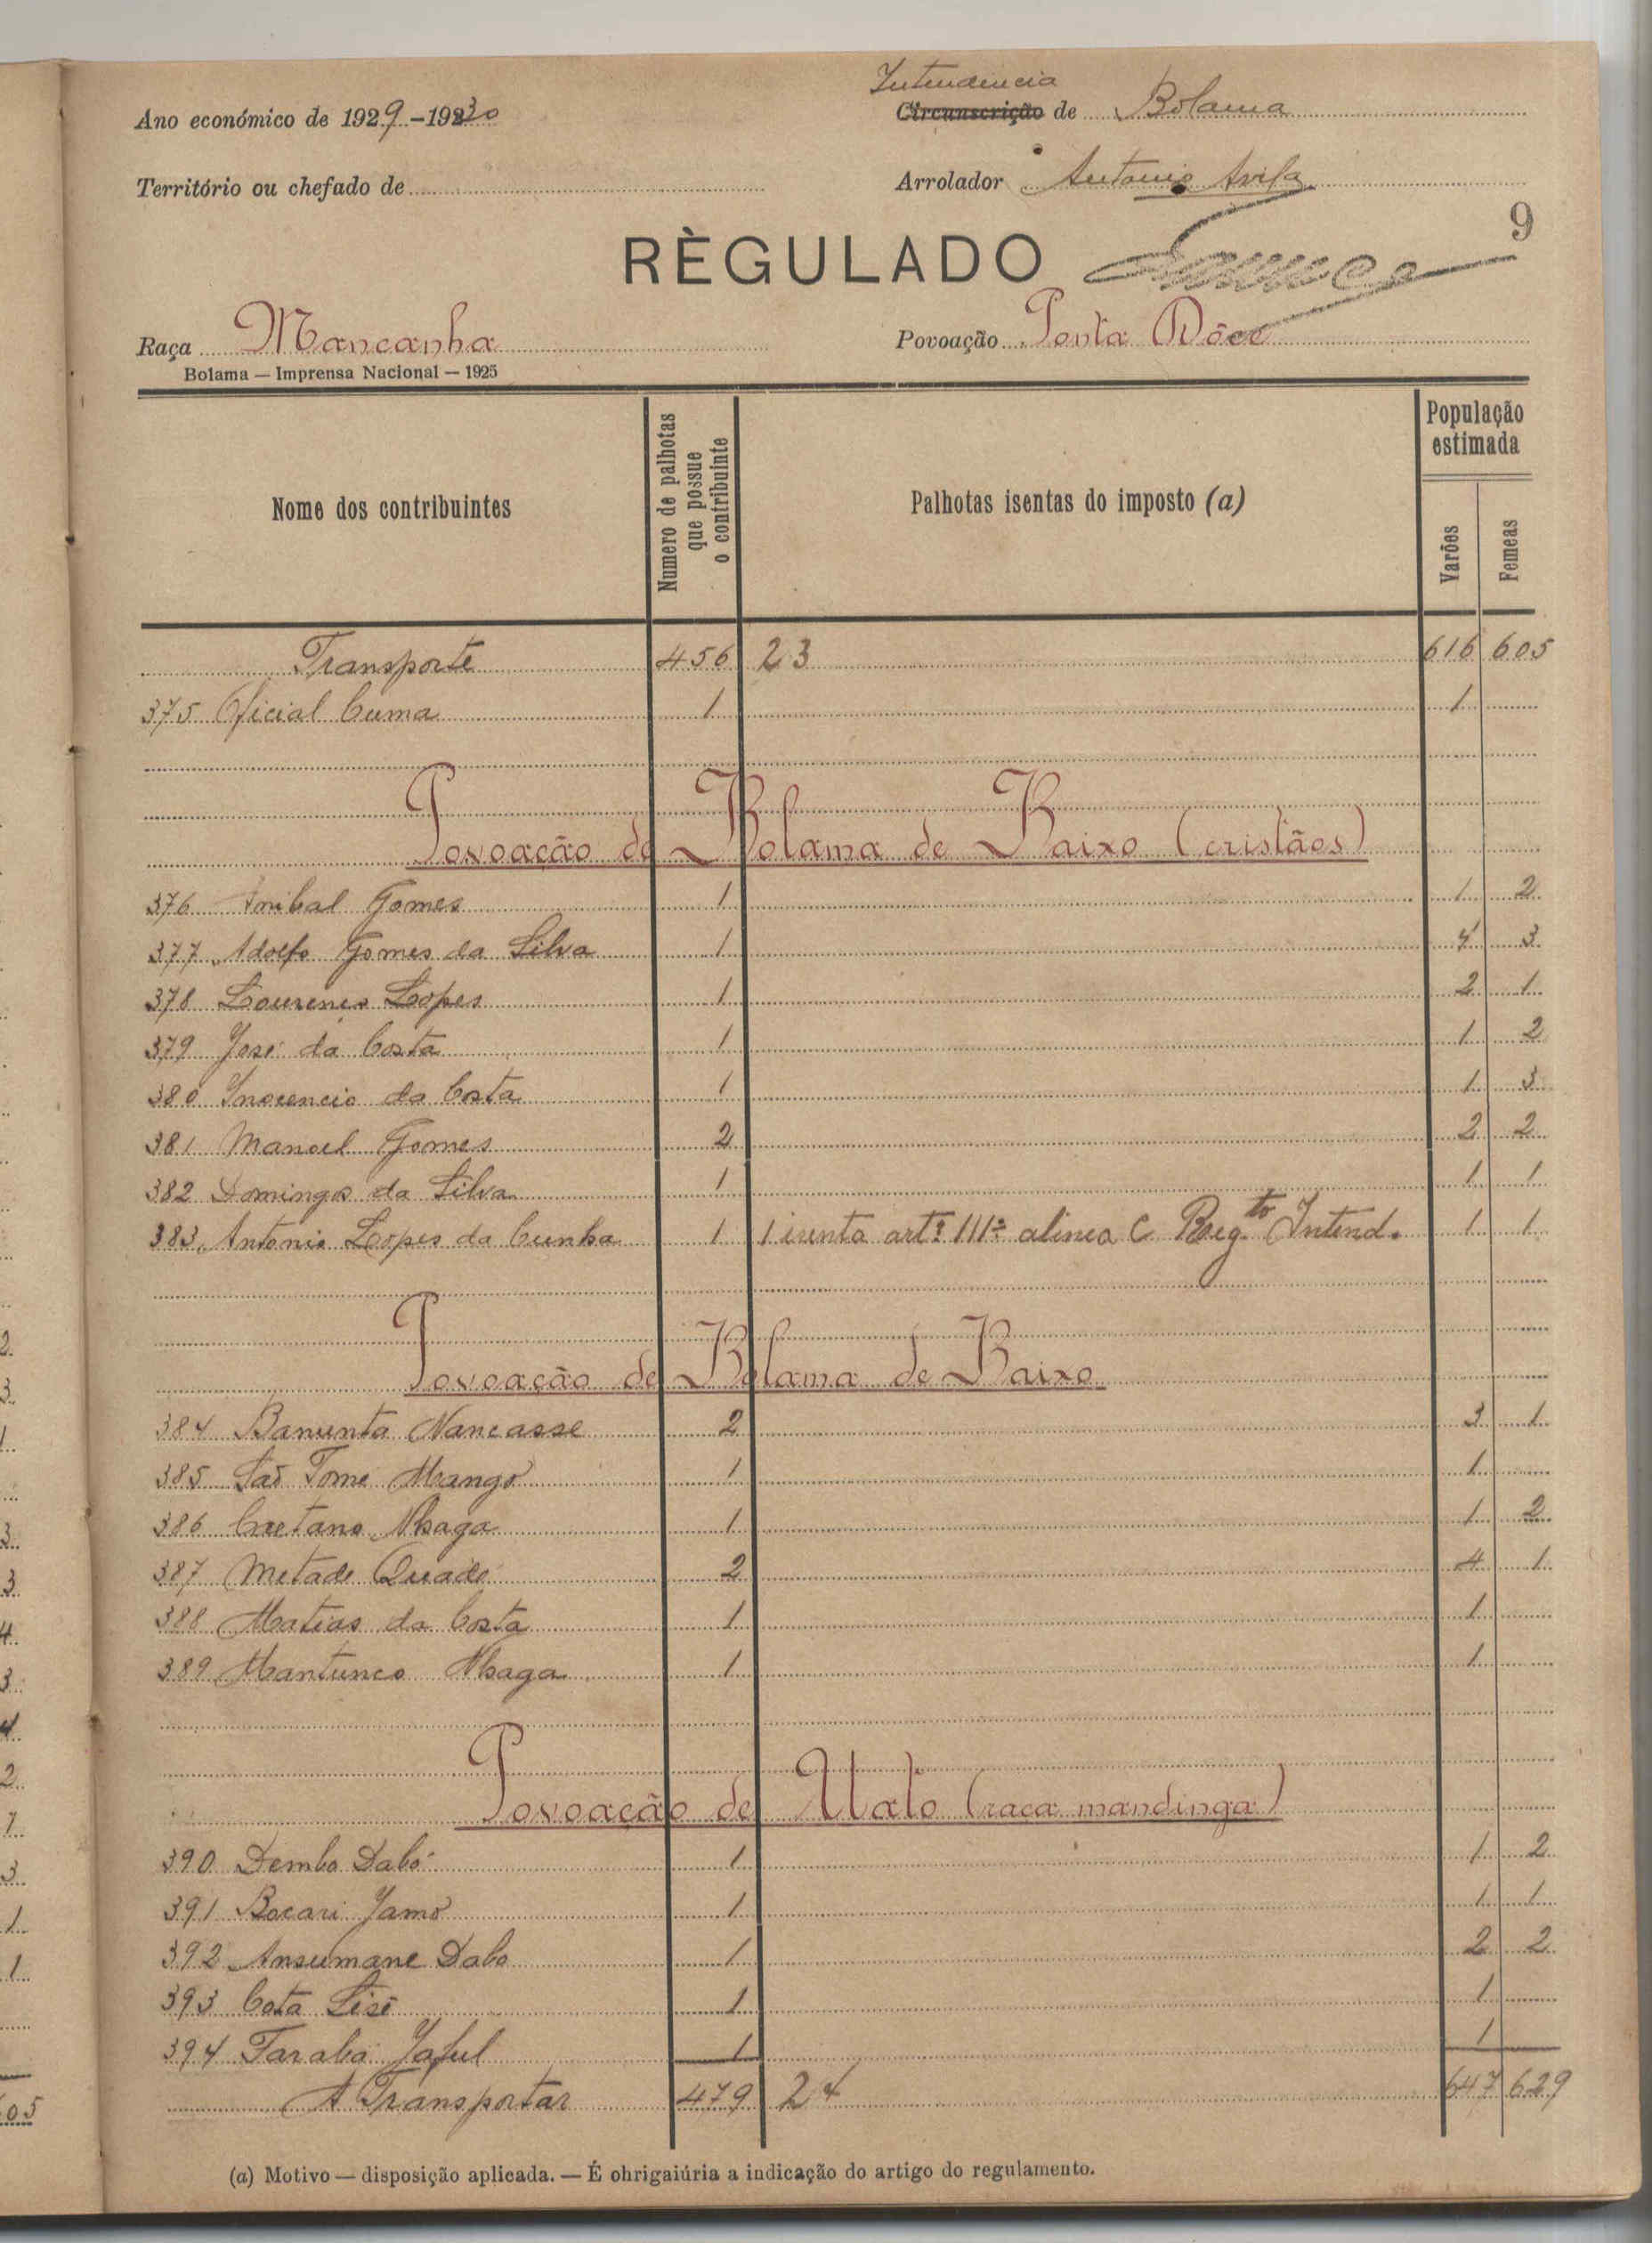 Intendencia
Ano económico de 1929-1930 Circunscrição de Bolama
Território ou chefado de Arrolador Antonio Avila
9
RÈGULADO
Raça Mancanha Povoação Ponta Dôce
Bolama — Imprensa Nacional — 1925
Nome dos contribuintes Numero de palhotas que possue o contribuinte Palhotas isentas do imposto (a) População estimada
Varões Femeas
Transporte 456 23 616 605
375 Oficial Cuma 1 1
Povoação de Bolama de Baixo (cristãos)
376 Anibal Gomes 1 1 2
377 Adolfo Gomes da Silva 1 4 3
378 Lourenço Lopes 1 2 1
379 José da Costa 1 1 2
380 Inocencio da Costa 1 1 3
381 Manoel Gomes 2 2 2
382 Domingos da Silva 1 1 1
383 Antonio Lopes da Cunha 1 1 isenta artº 111º alinea C Reg.to Intend. 1 1
Povoação de Bolama de Baixo
384 Banunta Nancasse 2 3 1
385 Saõ Tomé Mango 1 1
386 Caetano Nhaga 1 1 2
387 Metade Quade 2 4 1
388 Matias da Costa 1 1
389 Mantunco Nhaga 1 1
Povoação de Uato (raça mandinga)
390 Dembo Dabó 1 1 2
391 Bacari Jamo 1 1 1
392 Ansumane Dabo 1 2 2
393 Cota Sisé 1 1
394 Faraba Jaful 1 1
A Transportar 479 24 647 629
(a) Motivo — disposição aplicada. — É ohrigaiúria a indicação do artigo do regulamento.
2
3
1
3
3
4
3
4
2
1
3
1
1
605